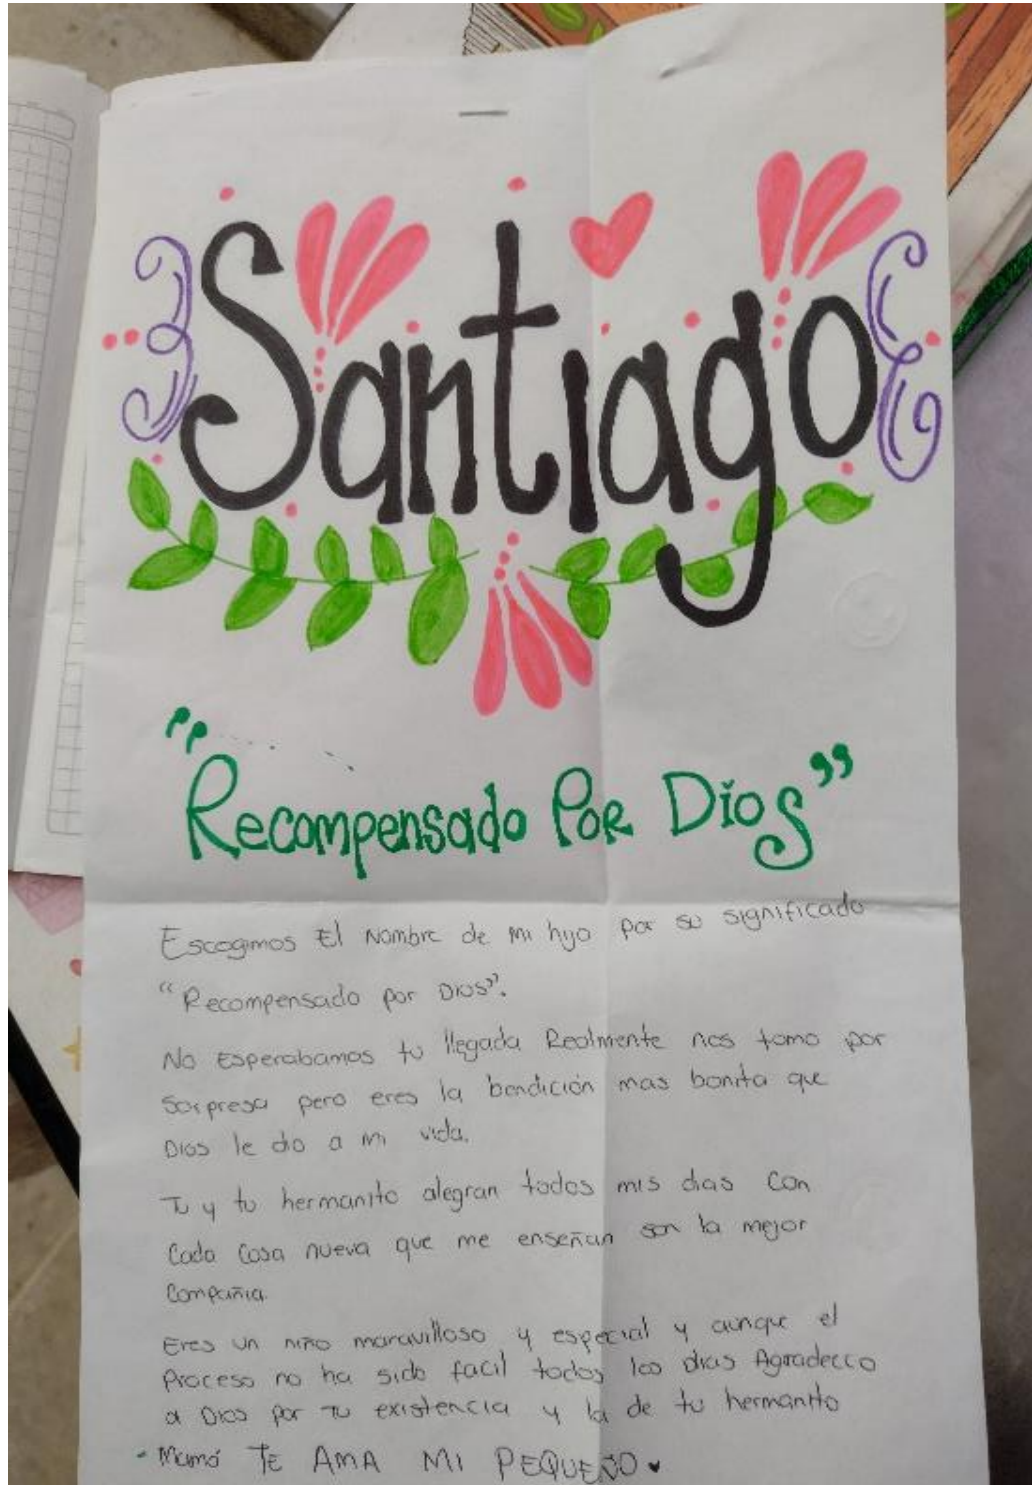 Santiago
"Recompensado Por Dios"
Escogimos El Nombre de mi hijo por su significado
"Recompensado por Dios".
No Esperabamos tu llegada Realmente nos tomo por
Sorpresa pero eres la bendición mas bonita que
Dios le dio a mi vida.
Tu y tu hermanito alegran todos mis dias con
Cada Cosa nueva que me enseñan son la mejor
Compañia.
Eres un niño maravilloso y especial y aunque el
Proceso no ha sido facil todos los dias Agradezco
a Dios por tu existencia y la de tu hermanito
- Mamá TE AMA MI PEQUEÑO